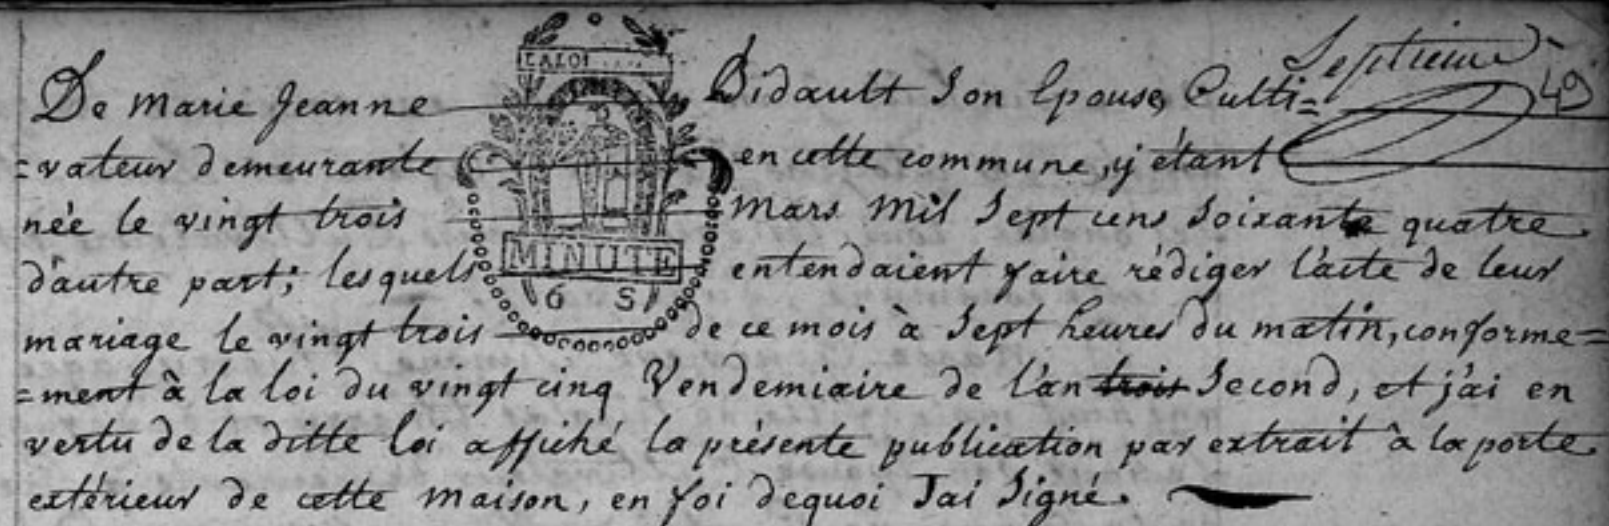 Septieme
49
LA LOI
De marie Jeanne Bidault Son Epouse, Culti=
=vateur demeurante en cette commune, y étant
née le vingt trois Mars Mil Sept cens Soixante quatre.
d'autre part; lesquels entendaient faire rédiger l'acte de leur
MINUTE
6 S
mariage le vingt trois de ce mois à Sept heures du matin, conforme=
=ment à la loi du vingt cinq Vendemiaire de l'an trois Second, et j'ai en
vertu de la ditte loi affiché la présente publication par extrait à la porte
extérieur de cette maison, en foi dequoi J'ai Signé.